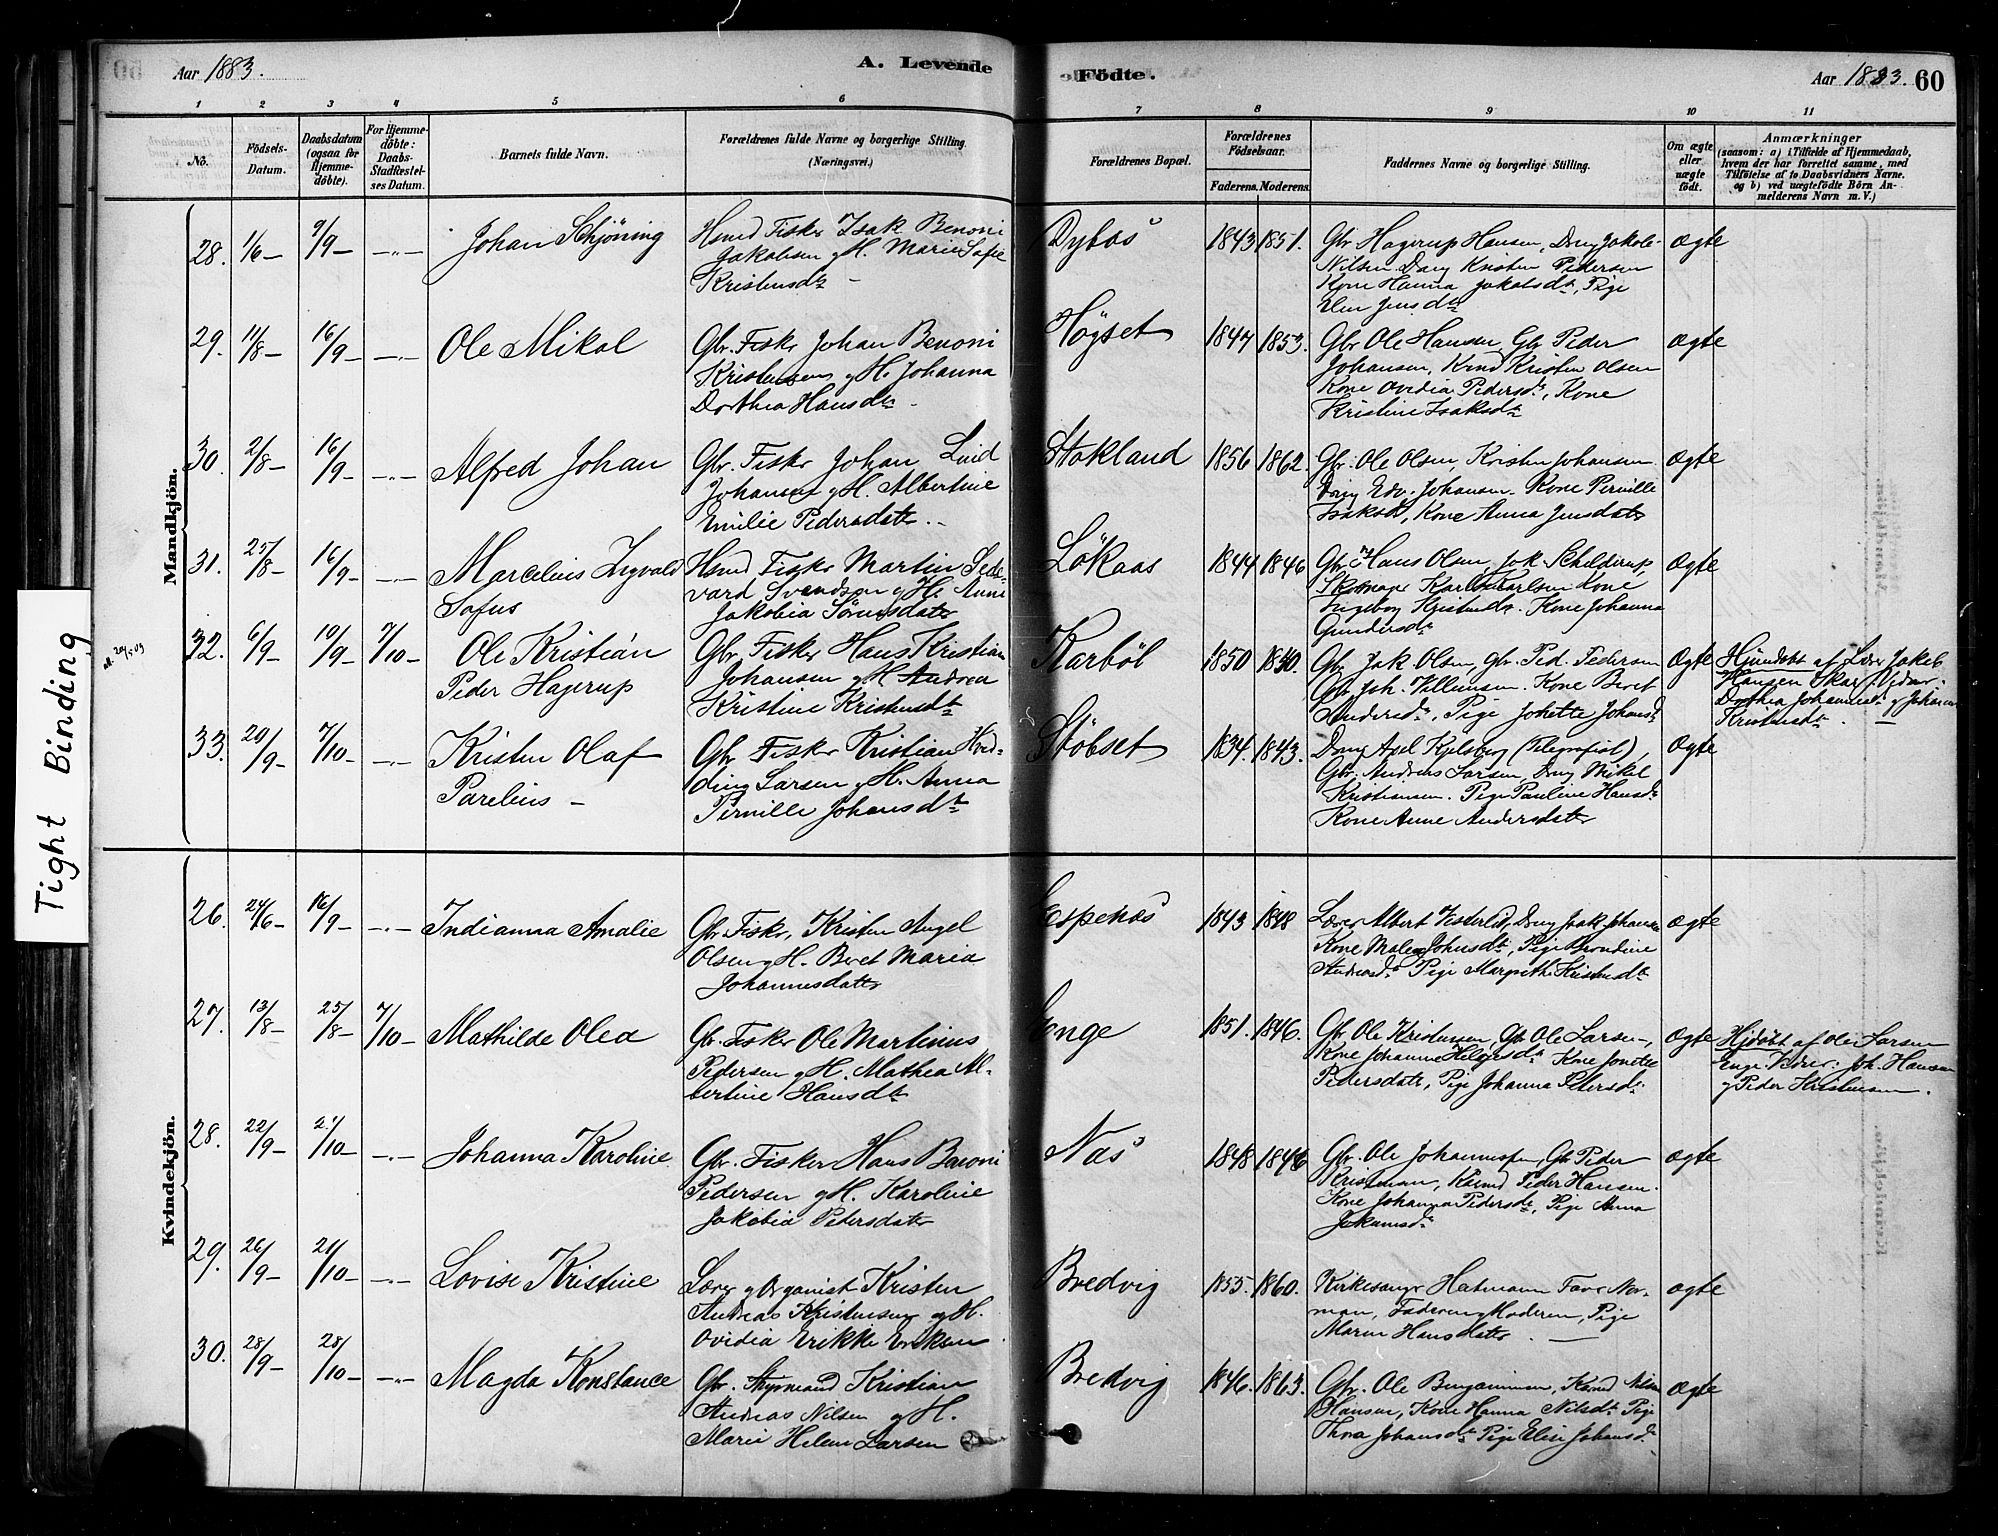 Aar 1883.
A. Levende Födte.
Aar 1883. 60
1 2 3 4 5 6 7 8 9 10 11
No.
Födsels-
Datum.
Daabsdatum
(ogsaa for
Hjemme-
döbte).
For Hjemme-
döbte:
Daabs-
Stadfæstel-
ses Datum.
Barnets fulde Navn.
Forældrenes fulde Navne og borgerlige Stilling.
(Næringsvei.)
Forældrenes Bopæl.
Forældrenes
Födselsaar.
Faderens. Moderens.
Faddernes Navne og borgerlige Stilling.
Om ægte
eller
uægte
födt.
Anmærkninger
(saasom: a) i Tilfælde af Hjemmedaab,
hvem der har forrettet samme, med
Tilföielse af to Daabsvidners Navne.
og b) ved uægtefödte Börn An-
melderens Navn m. V.)
Tight Binding
Mandkjön.
28. 1/6 – 9/9 – –„– Johan Schjöning
Hsmd Fisker Isak Benoni
Jakobsen og H. Marie Sofie
Kristensdtr –
Dybos 1843 1851.
Gbr Hagerup Hansen, Dreng Jakob
Nilsen Dreng Kristen Pedersen
Kone Hanna Jakobsdtr, Pige
Elen Jensdtr
Ægte
29. 11/8 – 16/9 – –„– Ole Mikal
Gbr. Fisker Johan Benoni
Kristensen og H. Johanna
Dorthea Hansdtr.
Högset 1847 1853.
Gbr Ole Hansen, Gbr Peder
Johansen, Kristen Olsen
Kone Ovidia Pedersdtr, Kone
Kristine Isaksdtr
Ægte
30. 2/8 – 16/9 – –„– Alfred Johan
Gbr. Fisker Johan
Johansen og H. Albertine
Emilie Pedersdatter. –
Stokland 1856 1862.
Gbr. Ole Olsen, Kristen Johansen
Dreng Edv. Johansen. Kone Pernille
Isaksdtr, Kone Anna Jensdatter
Ægte
31. 25/8 – 16/9 – –„– Marcelius Ingvald
Sofus
Hsmd Fisker Martin Sede-
vard Svendsen og H. Anne
Jakobia Sörensdatter
Lökaas 1844 1846
Gbr Hans Olsen, Jak. Schilderup
Skomager Karl Karlsen Kone
Ingeborg Kristensdtr. Kone Johanna
Gundersdtr
Ægte
32. 6/9 – 10/9 – 7/10 – Ole Kristian
Peder Hagerup
Gbr. Fisker Hans Kristian
Johansen og H Andrea
Kristine Kristensdtr
Karböl 1850 1850.
Gbr Jak Olsen, gbr. Ped. Pedersen
Gbr Joh. Villumsen. Kone Beret
Andersdtr, Pige Johette Johansdtr
Ægte
Hjemdöbt af Lærer Jakob
Hansen Vidner:
Dorthea Johannesdtr og Johanna
Kristensdtr. –
33. 20/9 – 7/10 – –„– Kristen Olaf
Parelius –
Gbr Fisker Kristian Hvid-
ding Larsen og H. Anna
Pernille Johansdtr
Stöbset 1834. 1843.
Dreng Axel Kjelsberg (Telegrafist),
Gbr. Andreas Larsen, Dreng Mikel
Kristiansen. Pige Pauline Hansdtr
Kone Anne Andersdatter
Ægte
Kvindekjön.
26. 24/6 – 16/9 – –„– Indianna Amalie
Gbr. Fisker, Kristen Angel
Olsen og H. Beret Maria
Johannesdatter
Espenæs 1843 1848
Lærer Albert Vesterlid, Dreng Isak Johansen
Kone Malena Johnsdtr, Pige Brondine
Andreasdtr Pige Margrethe Kristensdtr
Ægte
27. 13/8 – 25/8 – 7/10 – Mathilde Olea
Gbr. Fisker Ole Martinus
Pedersen og H. Mathea Al-
bertine Hansdtr
Enge 1851. 1846.
Gbr. Ole Kristensen, Gbr Ole Larsen,
Kone Johanna Helgesdtr Kone Jonette
Pedersdatter, Pige Johanna Petersdtr.
Ægte
Hjdöbt af Ole Larsen
Enge Vidner: Joh. Hansen
og Peder Kristensen.
28. 22/9 – 21/10 – –„– Johanna Karoline
Gbr. Fisker Hans Benoni
Pedersen og H. Karoline
Jakobia Petersdatter
Næs 1848 1846
Gbr. Ole Johannessen, Gbr Peder
Kristensen, Peder Hansen.
Kone Johanna Pedersdtr, Pige Anna
Johansdtr
Ægte
29. 26/9 – 21/10 – –„– Lovise Kristine
Lærer og Organist Kristen
Andreas Kristensen og H.
Ovidia Erikke Eriksen
Bredvig 1855. 1860.
Kirkesanger Hatmann Fru Nor-
man, Faderen og Moderen, Pige
Maren Hansdatter. –
Ægte
30. 28/9 – 28/10 – –„– Magda Konstance
Gbr. Styrmand Kristian
Andreas Nilsen og H.
Marie Helene Larsen
Bredvig 1846. 1863.
Gbr. Ole Benjaminsen, Nilsen
Hansen, Kone Hanna Nilsdtr Pige
Thora Johansdtr Pige Elise Johansdtr
Ægte